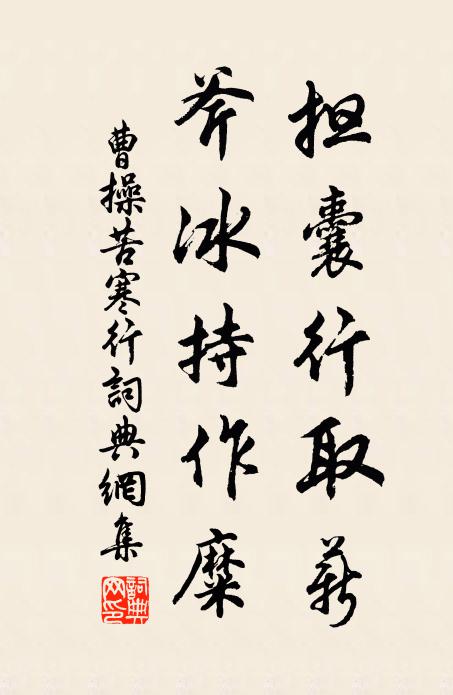 担囊行取薪
斧冰持作糜
曹操苦寒行詞典網集
詞典网印